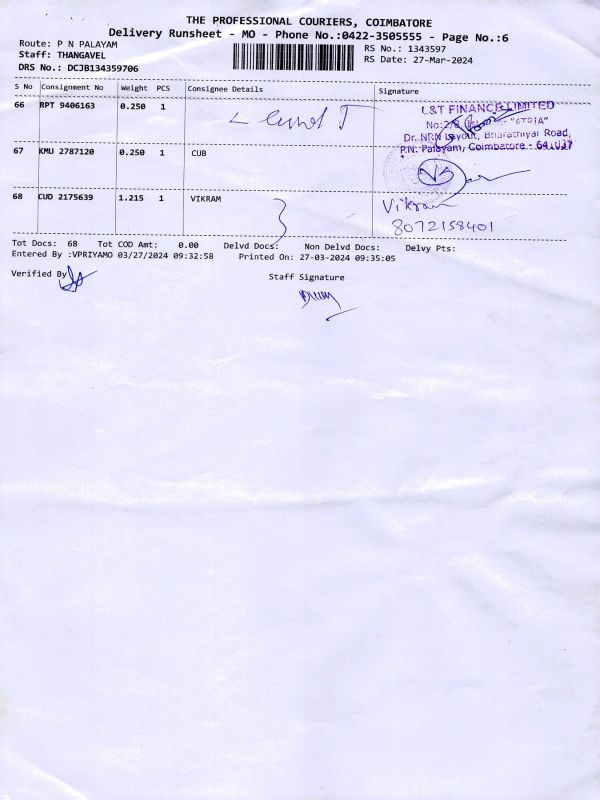 THE PROFESSIONAL COURIERS, COIMBATORE
Delivery Runsheet - MO - Phone No.:0422-3505555 - Page No.:6
Route: P N PALAYAM
Staff: THANGAVEL
DRS No.: DCJB134359706
RS No.: 1343597
RS Date: 27-Mar-2024
S No Consignment No Weight PCS Consignee Details Signature
66 RPT 9406163 0.250 1
L&T FINANCE LIMITED
"ATRIA"
Dr. NRN Layout, Bharathiyar Road,
P.N. Palayam, Coimbatore - 641 037
67 KMU 2787120 0.250 1 CUB
68 CUD 2175639 1.215 1 VIKRAM
Vikram
8072158401
Tot Docs: 68 Tot COD Amt: 0.00 Delvd Docs: Non Delvd Docs: Delvy Pts:
Entered By :VPRIYAMO 03/27/2024 09:32:58 Printed On: 27-03-2024 09:35:05
Verified By
Staff Signature